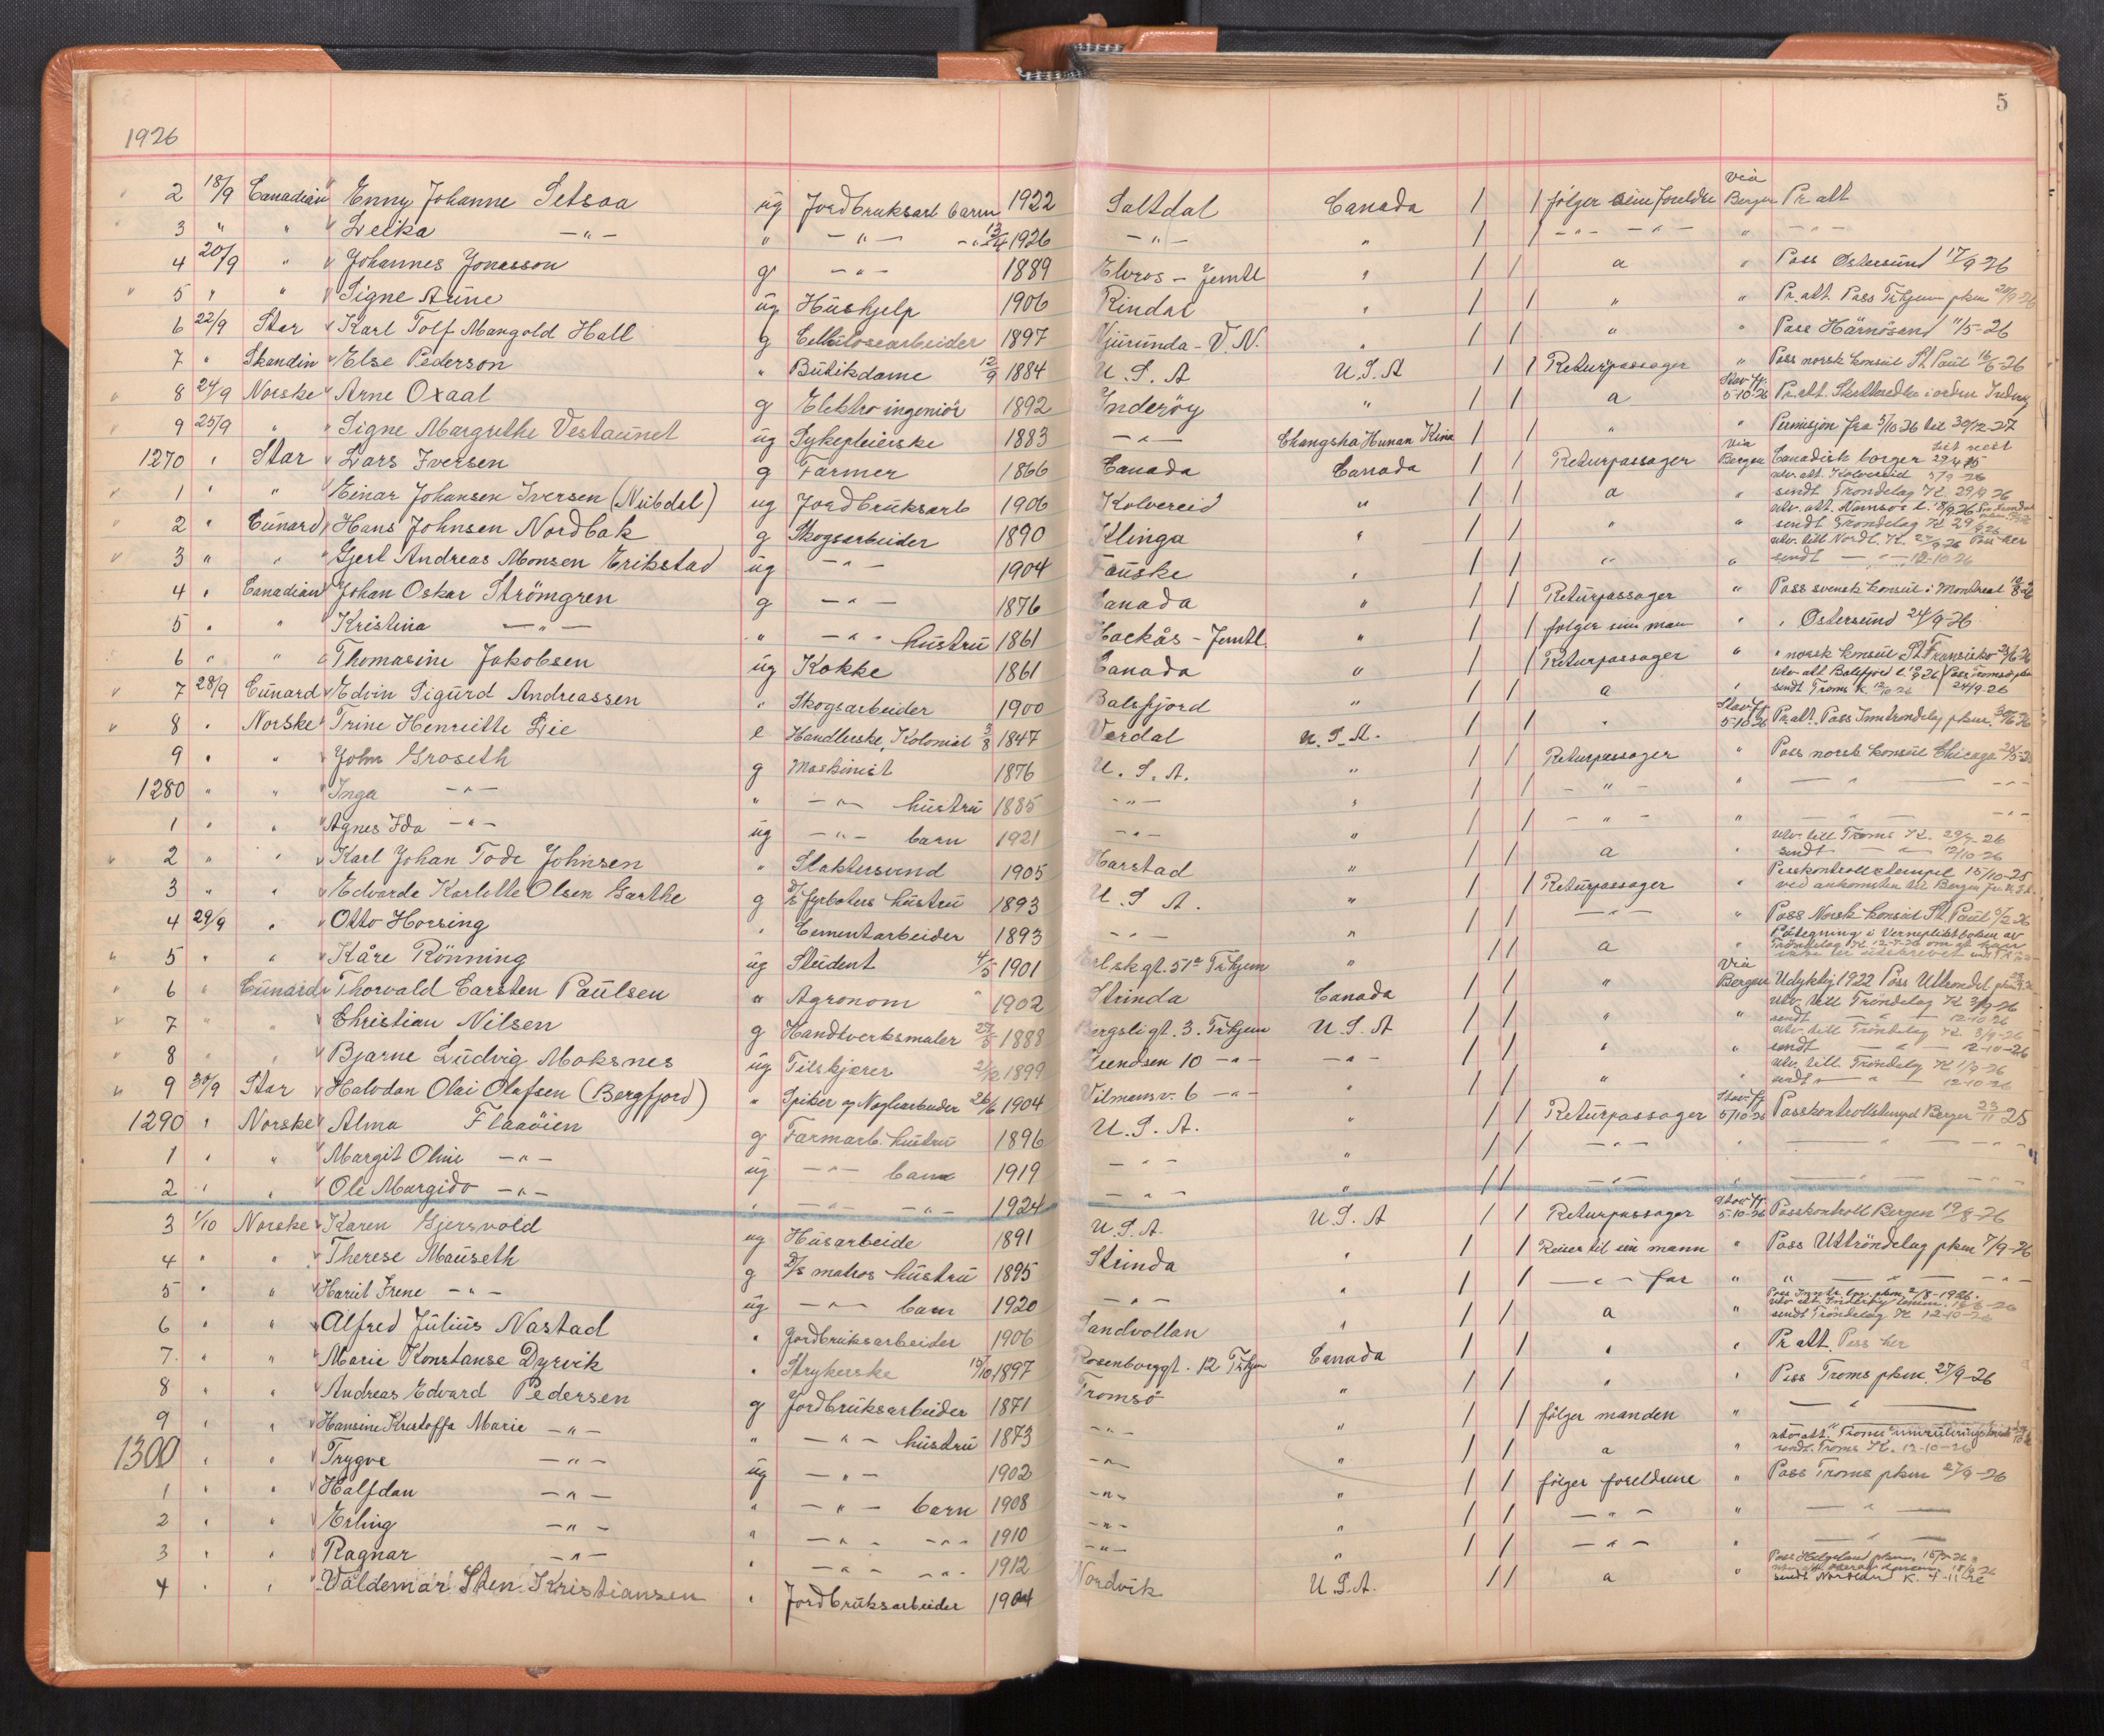 5
1926
2 18/9 Canadian Enny Johanne Setsaa ug Jordbruksarb barn 1922 Saltdal Canada / / følger sine foreldre via Bergen Pr att
3 " " Leika -"- " -"- -"- 13/4 1926 -"- " / / -"- -"- " -"-
4 20/9 " Johannes Jonasson g -"- 1889 Elvros - Jemtl " / / a " Pass Østersund 17/9-26
5 " " Signe Aune ug Hushjelp 1906 Rindal " / / " " Pr. att. Pass Trhjem pkm 20/9-26
6 22/9 Star Karl Tolf Mangold Hall g Cellulosearbeider 1897 Njurunda - V.N. " / / " " Pass Härnösand 11/5-26
7 " Skandin Else Pederson " Butikdame 12/9 1884 U.S.A U.S.A / / Returpassager " Pass norsk konsul St Paul 16/6-26
8 24/9 Norske Arne Oxaal g Elektro ingeniör 1892 Inderöy " / / a Stav.fj. 5-10-26 Pr. att. Skatteseddel i orden Inderöy
9 25/9 " Signe Margrethe Vestaunet ug Sykepleierske 1883 -"- Changsha Hunan Kina / / " " Permisjon fra 5/10-26 til 30/12-27
1270 " Star Lars Iversen g Farmer 1866 Canada Canada / / Returpassager via Bergen Canadisk borger 29/4 15
1 " " Einar Johansen Iversen (Nubdal) ug Jordbruksarb 1906 Kolvereid " / / a " utv. att. Kolvereid 5/9-26
sendt Trondelag K. 29/9 26
2 " Cunard Hans Johnsen Nordbak g Skogsarbeider 1890 Klinga " / / " " utv. att. Namsos l. 18/9 26
sendt Trondelag K 29/9 26
3 " " Gjert Andreas Monsen Erikstad ug -"- 1904 Fauske " / / " " utv. till Nordl. K. 27/9-26 Pass her
sendt -"- 12-10-26
4 " Canadian Johan Oskar Strömgren g -"- 1876 Canada " / / Returpassager " Pass svensk konsul i Montreal
5 " " Kristina -"- " -"- hustru 1861 Hackås - Jemtl. " / / følger sin man " " Østersund 24/9-26
6 " " Thomasine Jakobsen ug Kokke 1861 Canada " / / Returpassager " " norsk konsul St Fransisko
7 28/9 Cunard Edvin Sigurd Andreassen " Skogsarbeider 1900 Balsfjord " / / a " utv. att Balsfjord Pass Tromsø pkm
sendt Troms K 24/9-26
8 " Norske Trine Henriette Lie e Handlerske, Kolonial 3/8 1847 Verdal U.S.A. / / " Stav.fj. 5-10-26 Pr. att. Pass Inntrondelag pkm.
9 " " John Groseth g Maskinist 1876 U.S.A. " / / Returpassager " Pass norsk konsul Chicago
1280 " " Inga -"- " -"- hustru 1885 -"- " / / -"- " -"-
1 " " Agnes Ida -"- ug -"- barn 1921 -"- " / / -"- " -"-
2 " " Karl Johan Tode Johnsen " Slaktersvend 1905 Harstad " / / a " utv. till Troms K. 29/9-26
sendt -"- 12/10-26
3 " " Edvarda Karlotte Olsen Garthe g D/S fyrbøters hustru 1893 U.S A. " / / Returpassager " Passkontrollstempel 15/10-25
ved ankomsten til Bergen fra U.S.A.
4 29/9 " Otto Horsing " Cementarbeider 1893 -"- " / / -"- " Pass Norsk konsul St. Paul
5 " " Kåre Rönning ug Student 4/5 1901 skgt. 51a Trhjem " / / a " Påtegning i Vernepliktboken av
Tröndelag K
6 " Cunard Thorvald Carsten Paulsen " Agronom " 1902 Strinda Canada / / " Via Bergen Udyktig 1922 Pass Uttröndel
7 " " Christian Nilsen g Handtverksmaler 27/3 1888 Bergsligt. 3. Trhjem U.S.A / / " " utv. till Tröndelag K 3/9-26
sendt -"- 12-10 26
8 " " Bjarne Ludvig Moksnes ug Tilskjærer 1899 10 -"- -"- / / " " utv. till Tröndelag K. 3/9-26
sendt -"- 12-10-26
9 30/9 Star Halvdan Olai Olafsen (Bergfjord) " Spiker og Naglearbeider 26/6 1904 Vilmansv. 6 -"- " / / " " utv. till Tröndelag K 1/9-26
sendt -"- 12-10-26
1290 " Norske Alma Flaaöien g Farmarb. hustru 1896 U.S.A. " / / Returpassager Stav.fj. 5/10-26 Passkontrollstempel Bergen 23/11-25
1 " " Margit Oline -"- ug -"- barn 1919 -"- " / / -"- " -"-
2 " " Ole Margido -"- " -"- -"- 1924 -"- " / / -"- " -"-
3 1/10 Norske Karen Gjersvold ug Husarbeide 1891 U.S.A. U.S.A / / Returpassager Stav.fj. 5-10-26 Passkontroll Bergen 19/8-26
4 " " Therese Mauseth g D/S matros hustru 1895 Strinda " / / Reiser til sin mann " Pass Uttröndelag pkm 7/9-26
5 " " Harriet Irene -"- ug -"- barn 1920 -"- " / / -"- far " " -"-
6 " " Alfred Julius Nastad " Jordbruksarbeider 1906 Sandvollan " / / a " Pass Inntr. pkm. 2/8-1926.
sendt Tröndelag K 12-10-26
7. " " Marie Konstanse Dyrvik " Strykerske 15/10 1897 Rosenborggt. 12 Trhjm Canada / / " " Pr att. Pass her
8 " " Andreas Edvard Pedersen g Jordbruksarbeider 1871 Tromsö " / / " " Pass Troms pkm. 27/9-26
9 " " Hansine Kristoffa Marie -"- " -"- hustru 1873 -"- " / / følger manden " -"-
1300 " " Trygve -"- ug -"- 1902 -"- " / / a " utv. att. Troms
sendt. Troms K. 12-10-26
1 " " Halfdan -"- " -"- barn 1908 -"- " / / følger foreldrene " Pass Troms pkm 27/9-26
2 " " Erling -"- " -"- -"- 1910 -"- " / / -"- " -"-
3 " " Ragnar -"- " -"- -"- 1912 -"- " / / -"- " -"-
4 " " Valdemar Sten Kristiansen " Jordbruksarbeider 1904 Nordvik U.S.A. / / a " Pass Helgeland pkm.
sendt Nordland K. 4-11-26